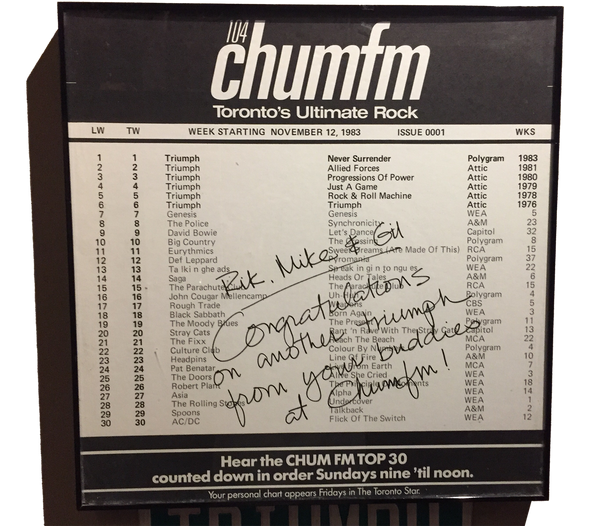 104
chumfm
Toronto's Ultimate Rock
LW TW WEEK STARTING NOVEMBER 12, 1983 ISSUE 0001 WKS
1 1 Triumph Never Surrender Polygram 1983
2 2 Triumph Allied Forces Attic 1981
3 3 Triumph Progressions Of Power Attic 1980
4 4 Triumph Just A Game Attic 1979
5 5 Triumph Rock & Roll Machine Attic 1978
6 6 Triumph Triumph Attic 1976
7 7 Genesis Genesis WEA 5
8 8 The Police Synchronicity A&M 23
9 9 David Bowie Let's Dance Capitol 32
10 10 Big Country The Polygram 8
11 11 Eurythmics Sweet Dreams (Are Made Of This) RCA 15
12 12 Def Leppard Pyromania Polygram 37
13 13 Ta lki n ghe ads Sp eak in gi n to ngu es WEA 22
14 14 Saga Heads Or Tales A&M 6
15 15 The Parachute Club The Parachute Club RCA 15
16 16 John Cougar Mellencamp Uh Polygram 4
17 17 Rough Trade CBS 5
18 18 Black Sabbath Born Again WEA 3
19 19 The Moody Blues The Polygram 11
20 20 Stray Cats Rant 'n Rave With The Stray Cats Capitol 13
21 21 The Fixx Reach The Beach MCA 22
22 22 Culture Club Colour By Polygram 4
23 23 Headpins Line Of Fire A&M 10
24 24 Pat Benatar Live From Earth MCA 7
25 25 The Doors Alive She Cried WEA 3
26 26 Robert Plant The Principle Moments WEA 18
27 27 Asia Alpha WEA 14
28 28 The Rolling Stones Undercover WEA 1
29 29 Spoons Talkback A&M 2
30 30 AC/DC Flick Of The Switch WEA 12
Rik, Mike & Gil
Congratulations
on another triumph
from your buddies
at Chumfm!
Hear the CHUM FM TOP 30
counted down in order Sundays nine 'til noon.
Your personal chart appears Fridays in The Toronto Star.
TRIUMPH